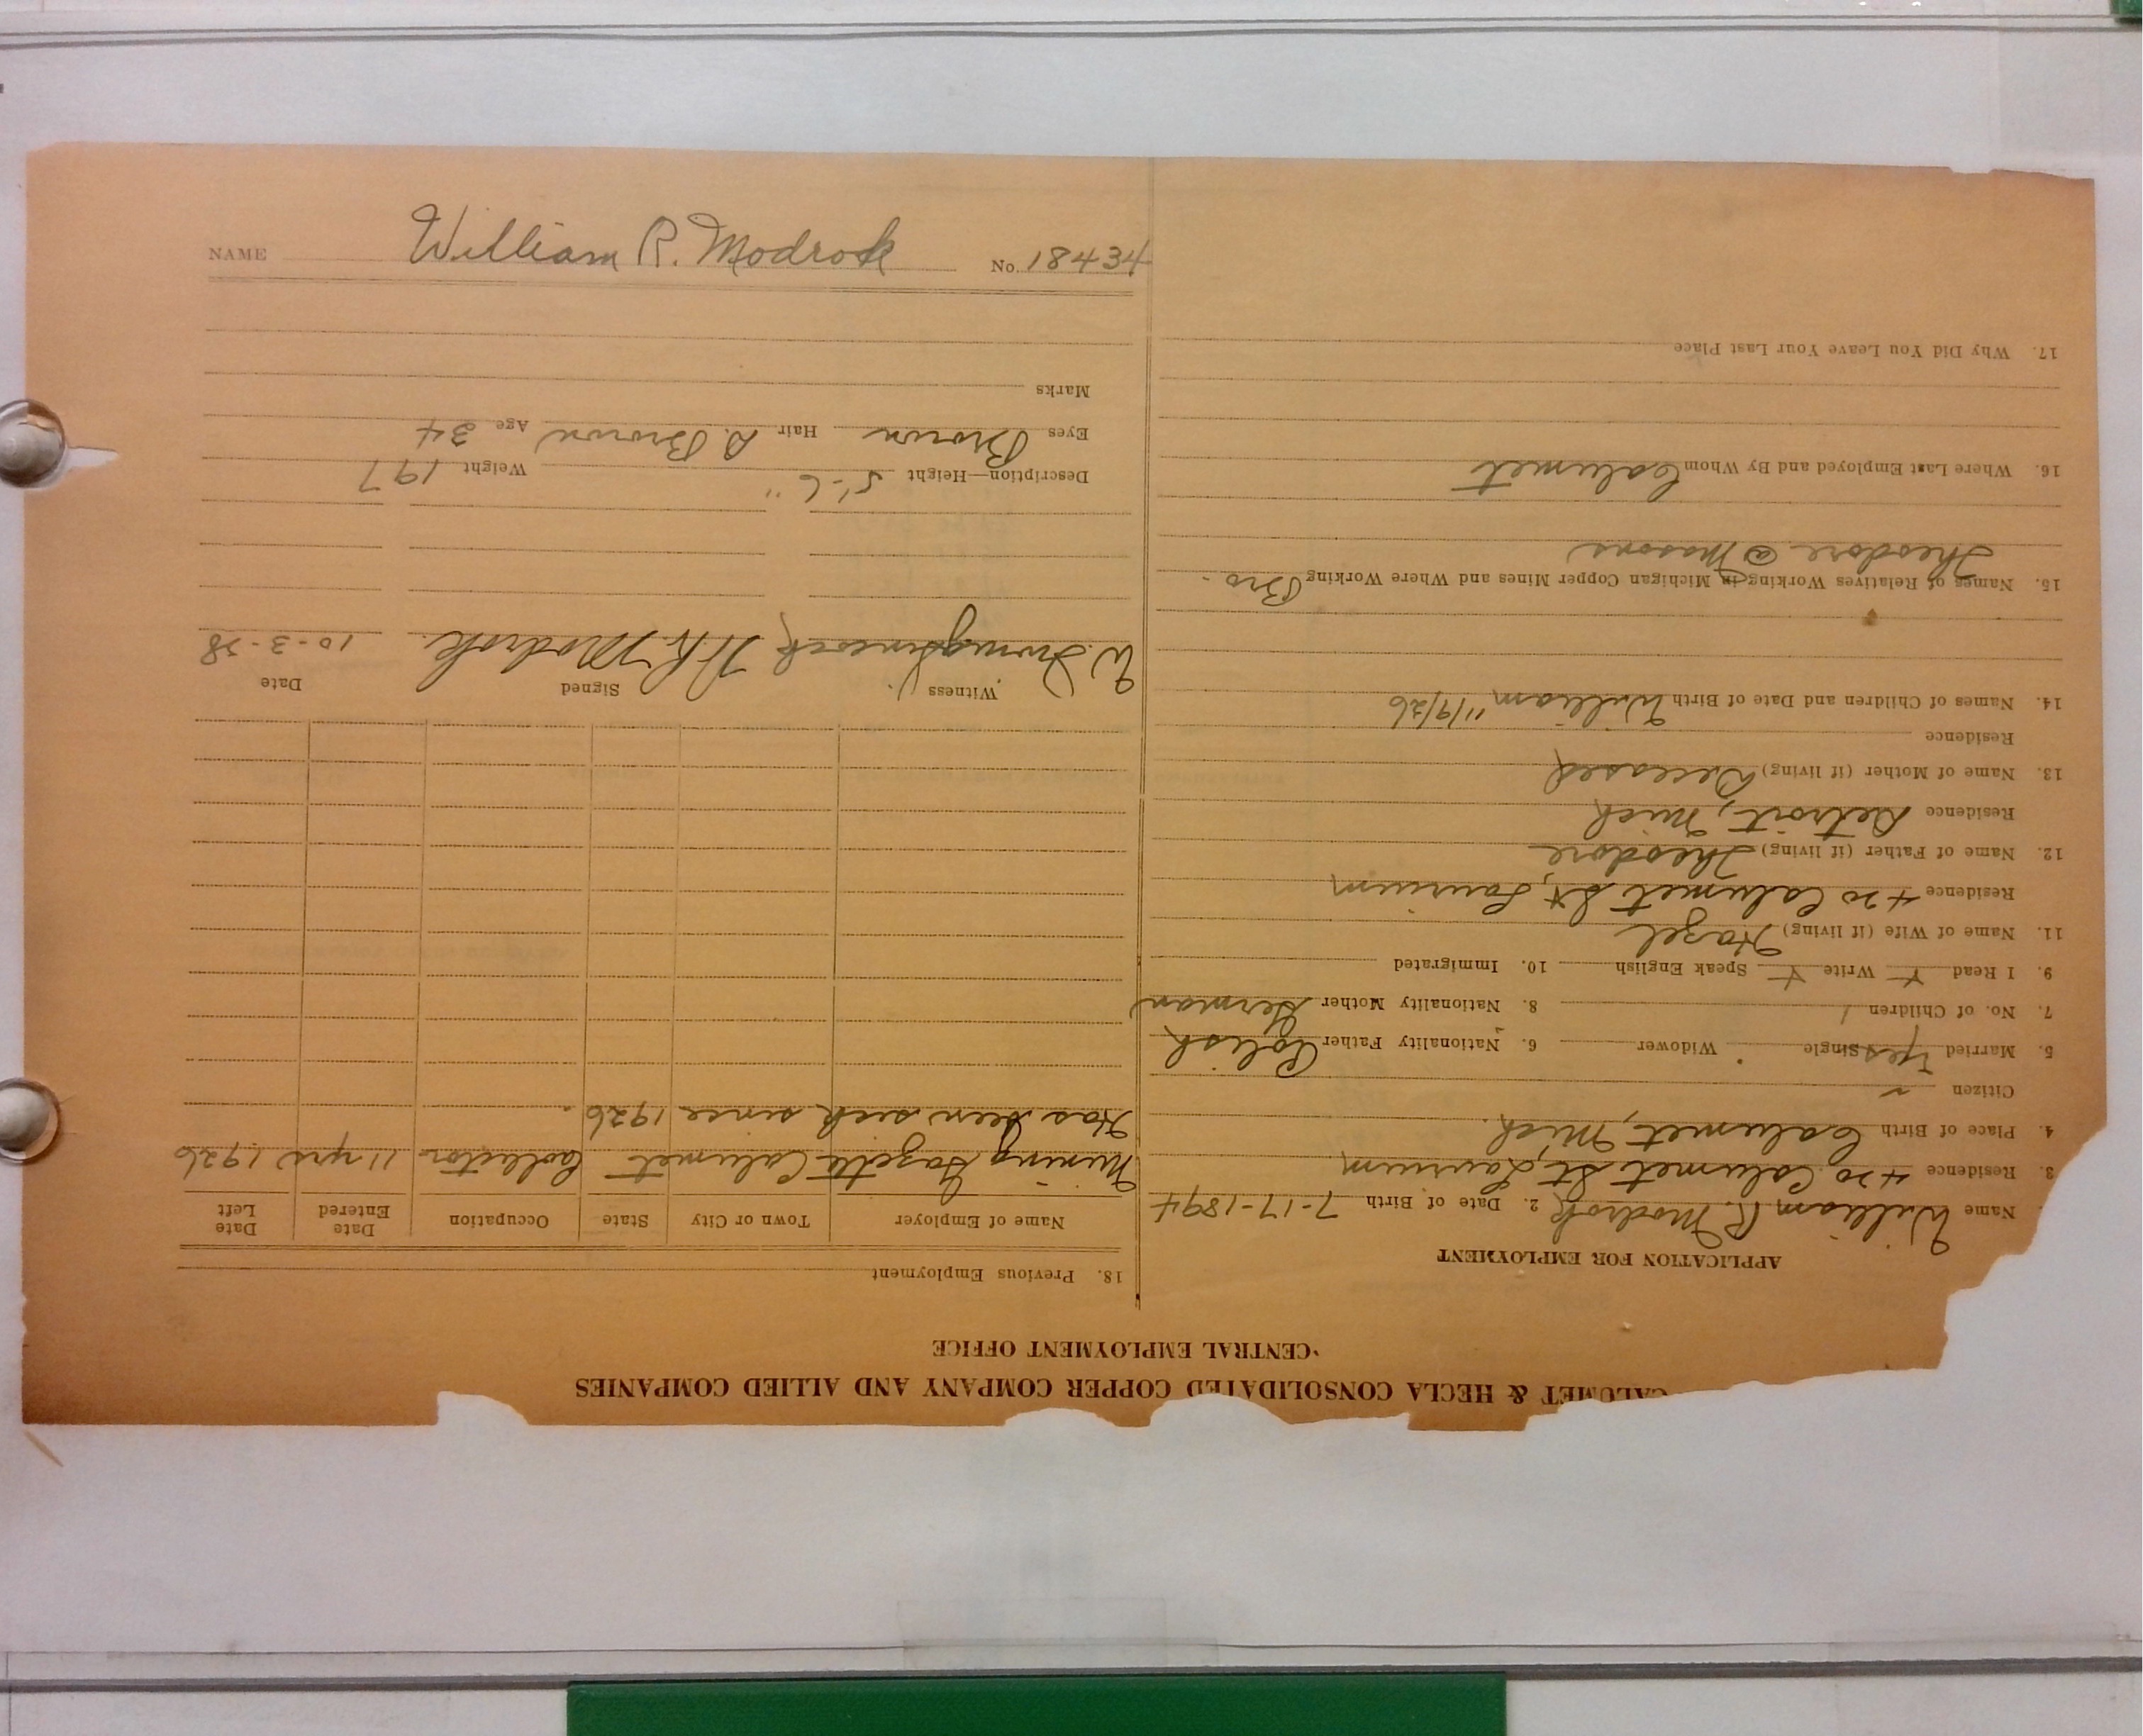 NAME William R. Modrok No. 18434
CALUMET & HECLA CONSOLIDATED COPPER COMPANY AND ALLIED COMPANIES
CENTRAL EMPLOYMENT OFFICE
APPLICATION FOR EMPLOYMENT
Name William R. Modrok 2. Date of Birth 7-17-1894
3. Residence 420 Calumet St, Laurium
4. Place of Birth Calumet, Mich.
Citizen
5. Married Yes Single Widower 6. Nationality Father Polish
7. No. of Children 1 8. Nationality Mother German
9. I Read Y Write Y Speak English 10. Immigrated
11. Name of Wife (if living) Hazel
Residence 420 Calumet St, Laurium
12. Name of Father (if living) Theodore
Residence Detroit, Mich
13. Name of Mother (if living) Deceased
Residence
14. Names of Children and Date of Birth William 11/9/26
15. Names of Relatives Working in Michigan Copper Mines and Where Working Bro-
Theodore @ Masons
16. Where Last Employed and By Whom Calumet
17. Why Did You Leave Your Last Place
18. Previous Employment
Name of Employer Town or City State Occupation Date Entered Date Left
Mining Gazette Calumet Collector 11 yrs 1926
Has been sick since 1926.
Witness Signed Date
W. R. Modrok. 10-3-28
Description—Height 5'-6" Weight 197
Eyes Brown Hair D. Brown Age 34
Marks